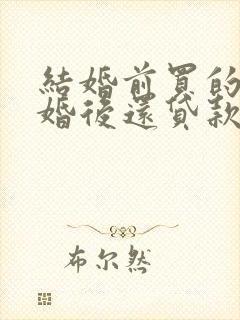 結婚前買的
婚後還貸款
布尔然